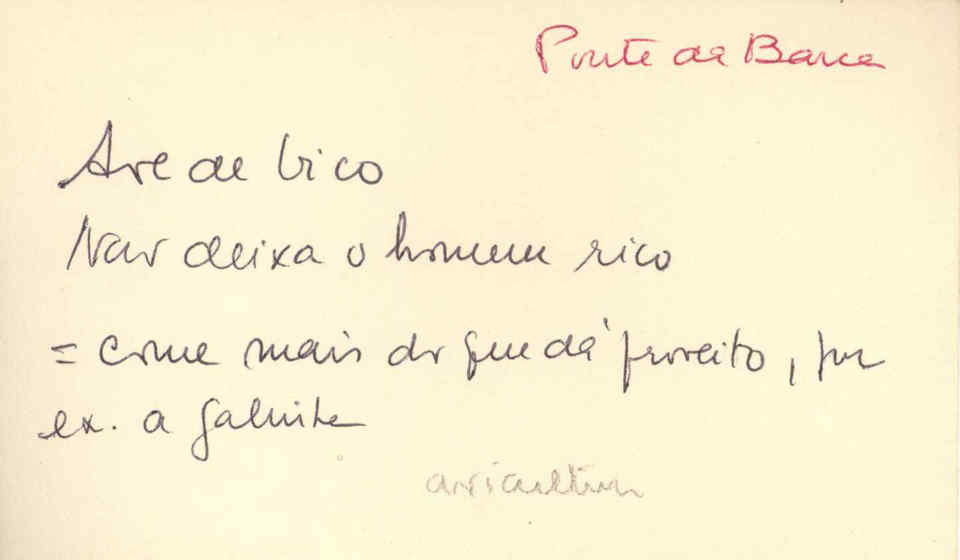 Ponte da Barca
Ave de bico
Não deixa o homem rico
= come mais do que dá proveito, por
ex. a galinha
avicultura